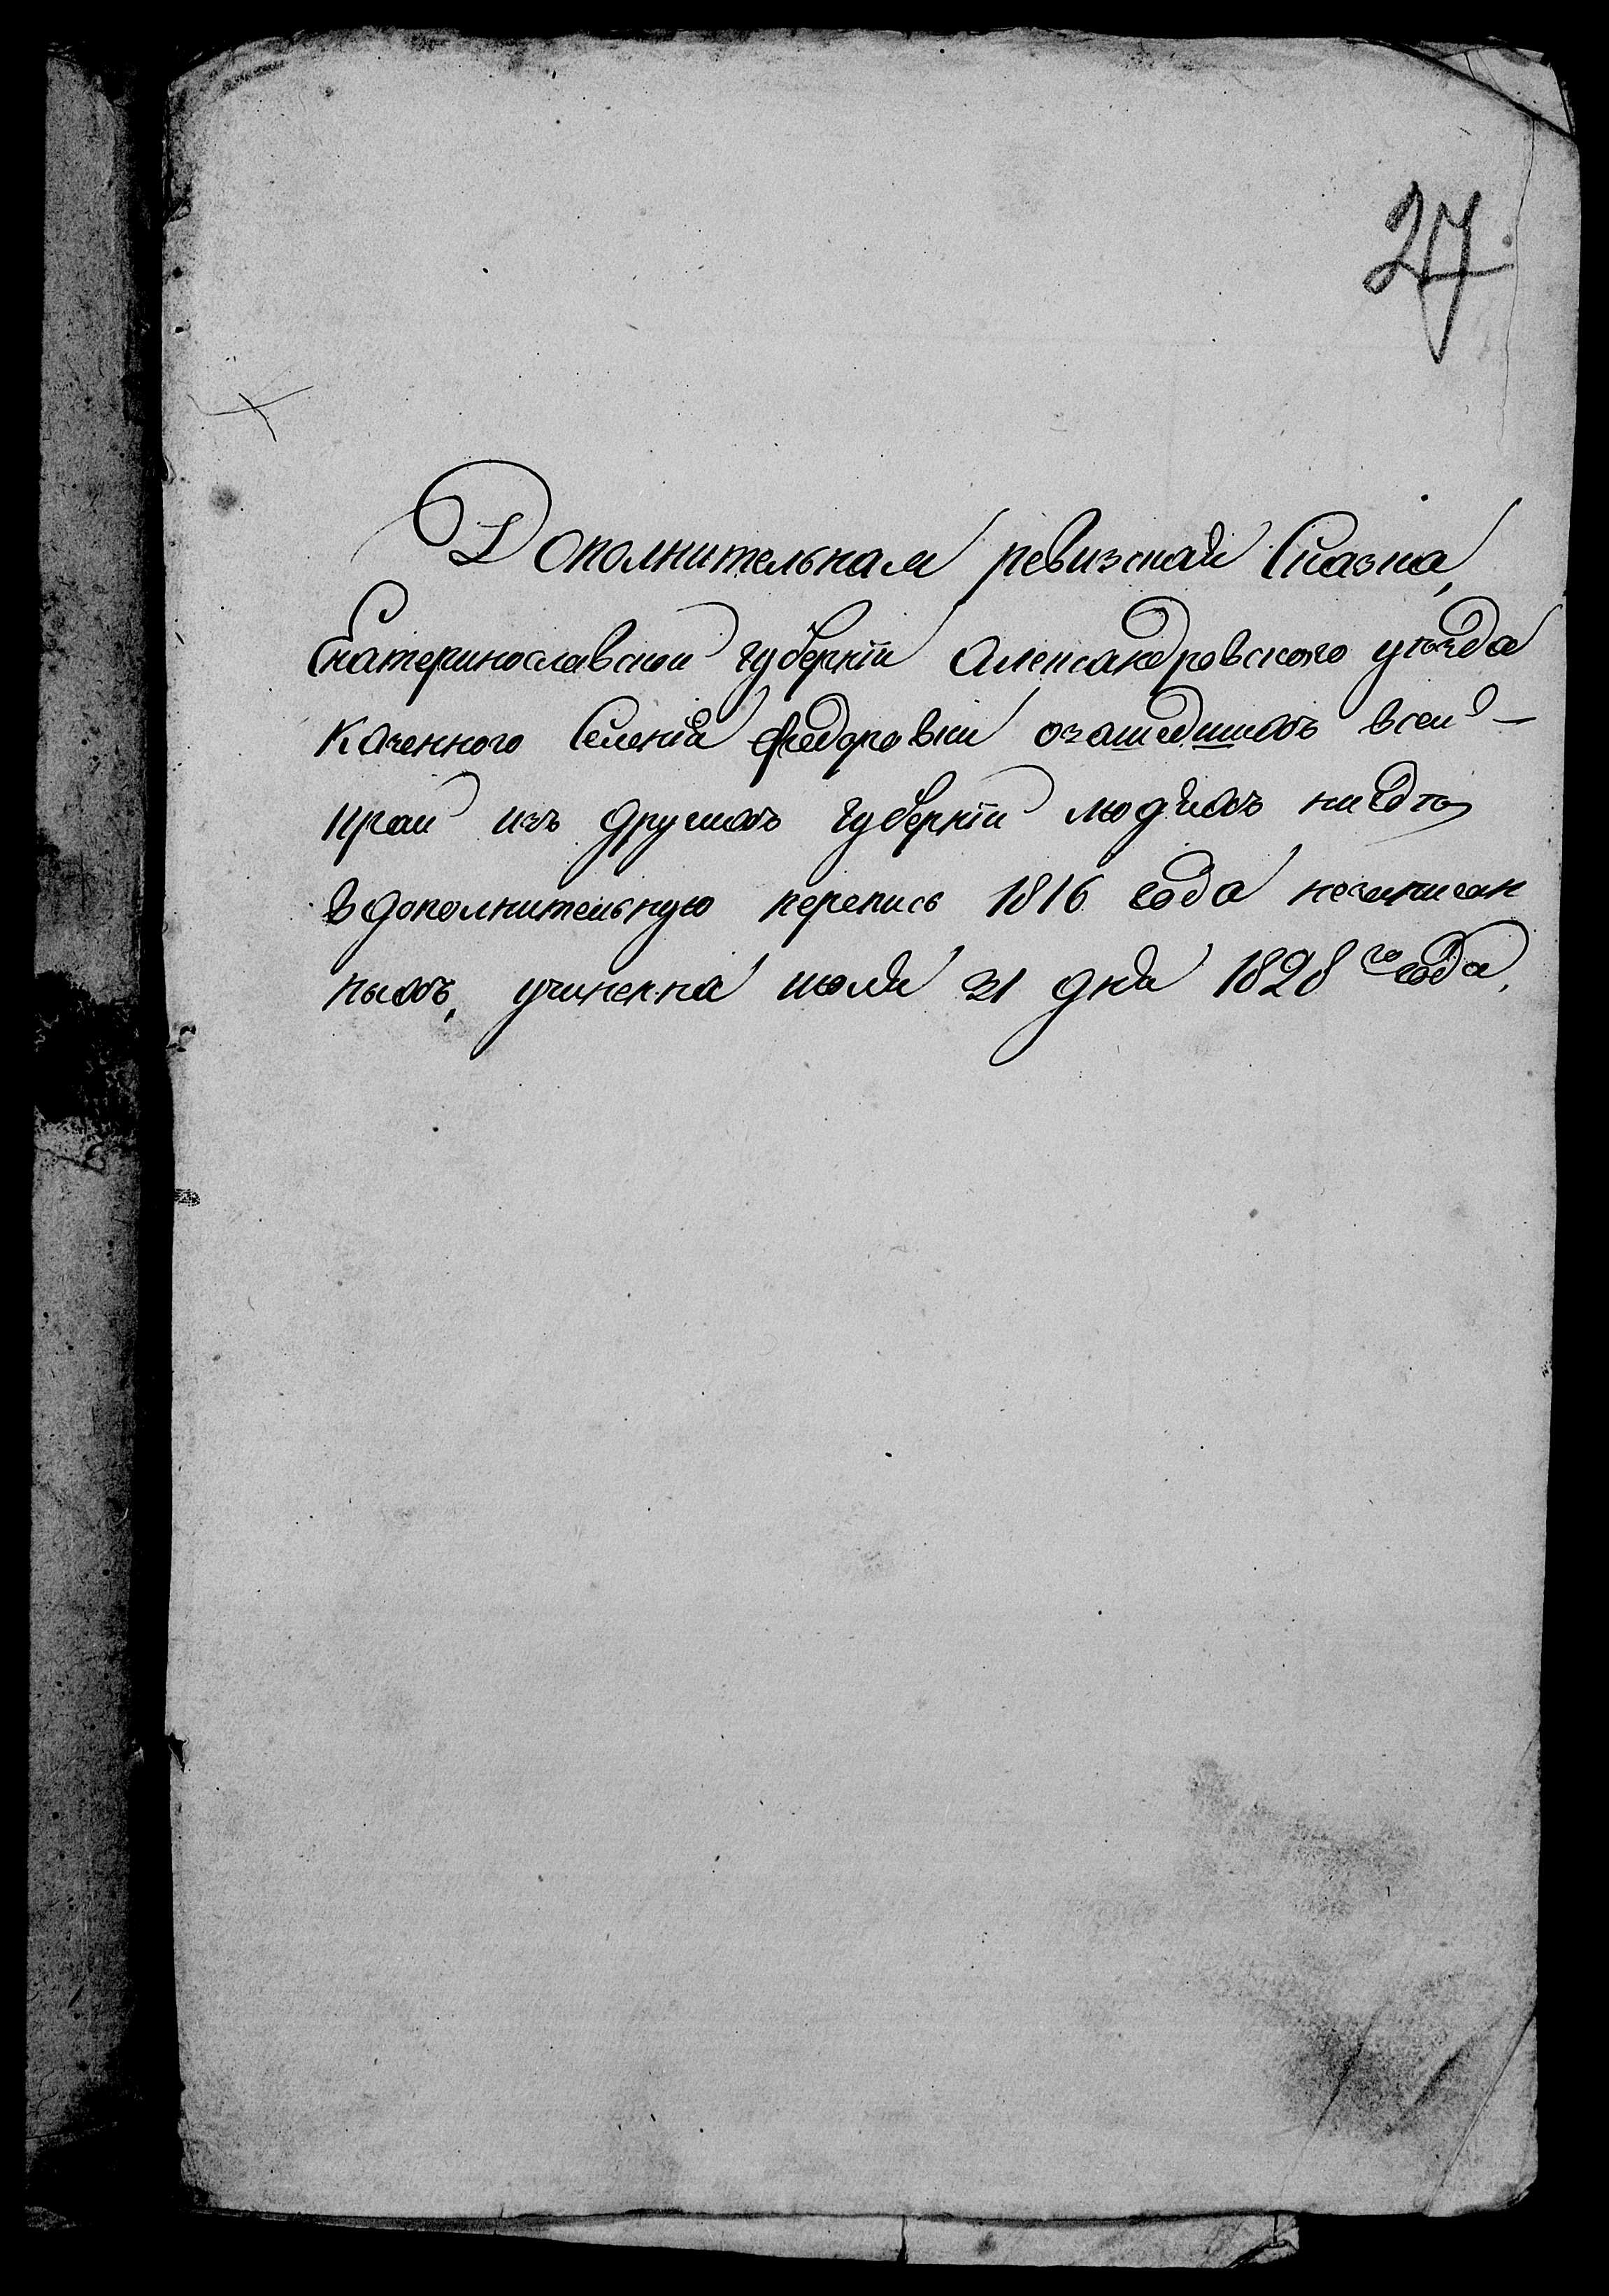 27
Дополнительная ревизская Сказка,
Екатеринославской губернїи Александровского уѣзда
Казенного Селенїя Федоровки озашедшихъ всей –
край изъ другихъ губернїи людяхъ нигдѣ
вдополнительную перепись 1816 года незаписан
ныхъ, учиненна июля 31 дня 1828го года.